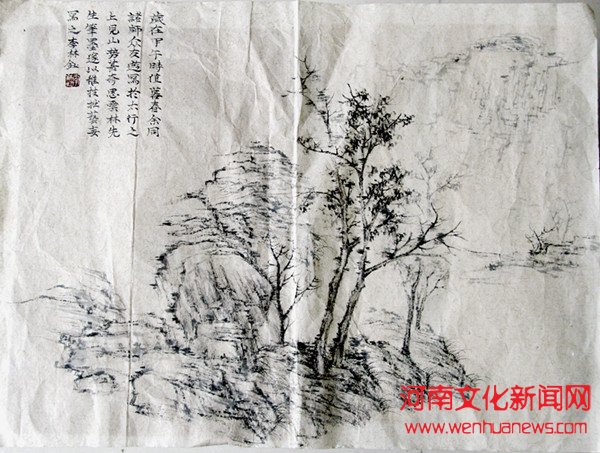 歲在甲午時值暮春余同
諸師众友遊寫於太行之
上見山勢甚奇思雲林先
生筆墨遂以稚技拙藝妄
寫之李林
河南文化新闻网
www.wenhuanews.com